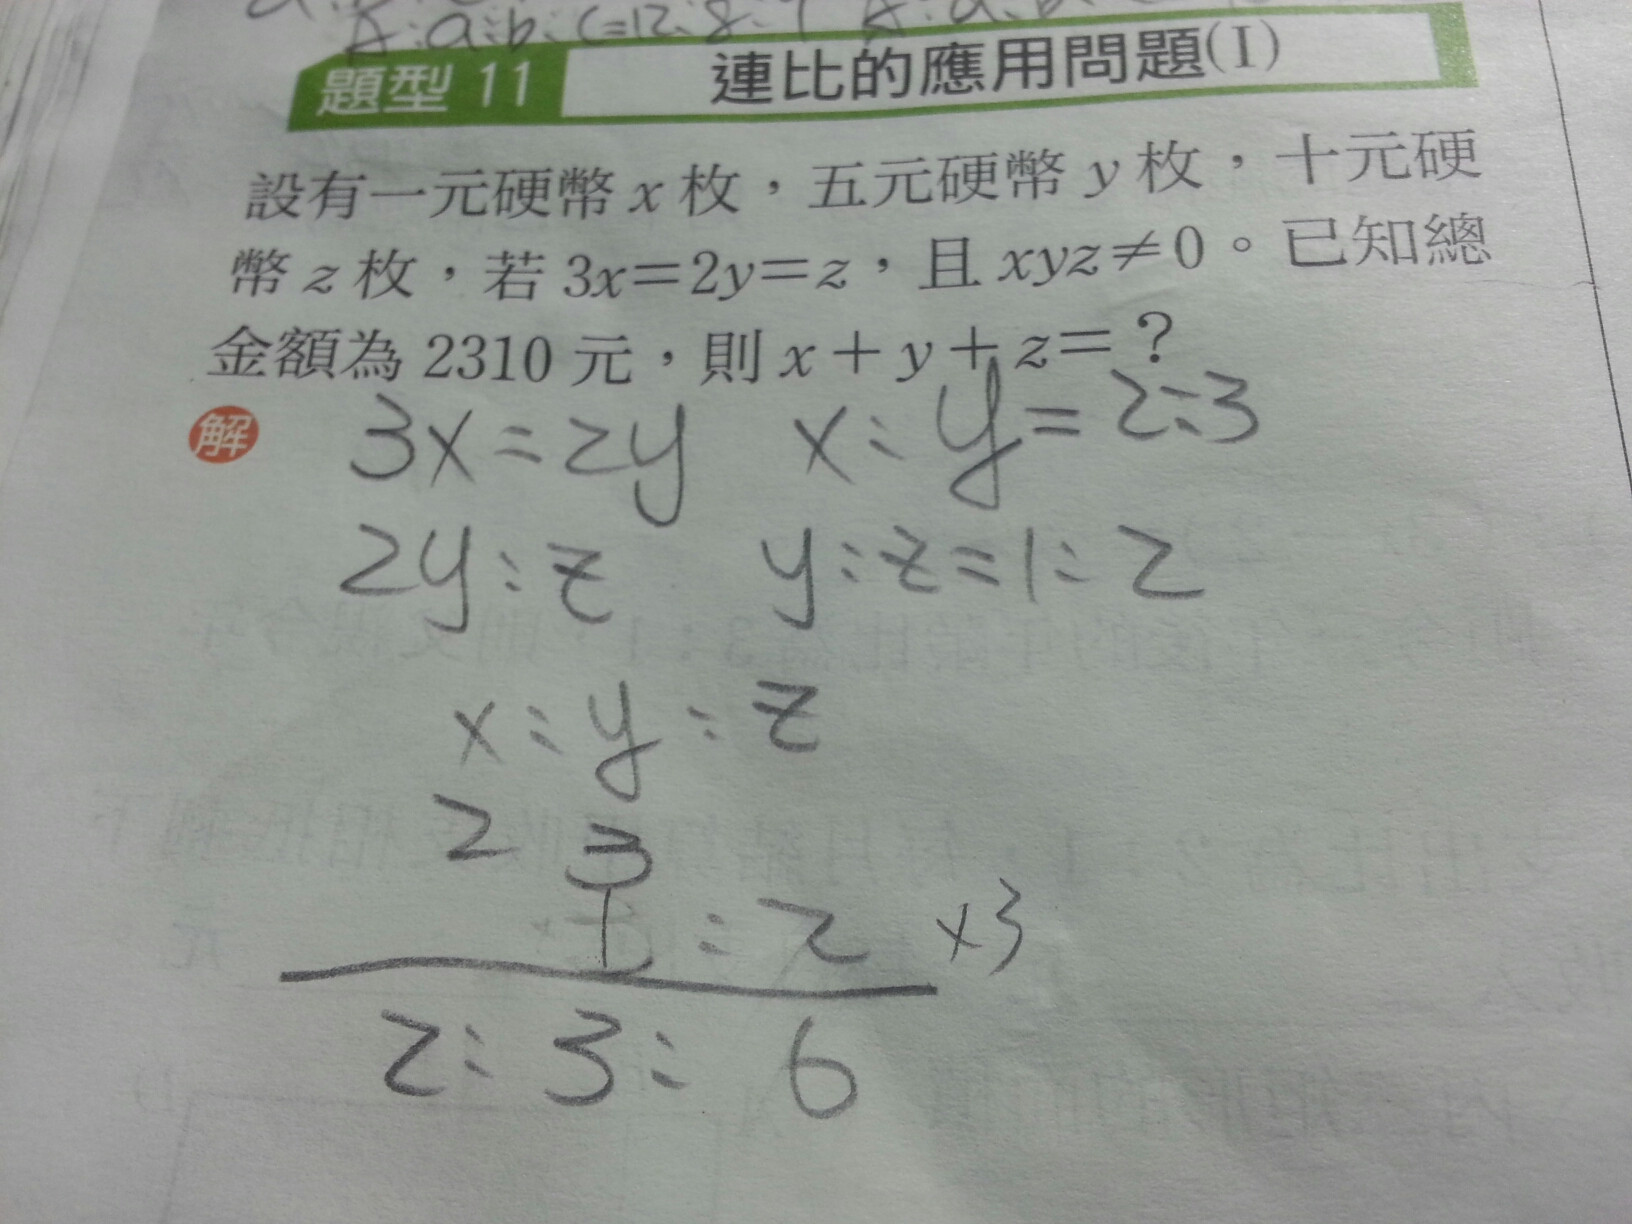 A:a:b:c=12:8:9
題型 11 連比的應用問題(I)
設有一元硬幣 x 枚，五元硬幣 y 枚，十元硬
幣 z 枚，若 3x＝2y＝z，且 xyz≠0。已知總
金額為 2310 元，則 x＋y＋z＝？
解 3x=2y x:y=2:3
2y:z y:z=1:2
x:y:z
2 3
1:2 ×3
2:3:6